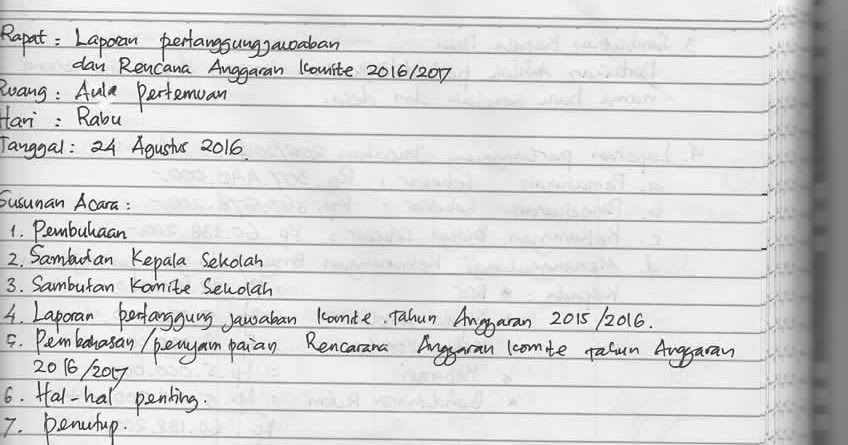 Rapat : Laporan pertanggungjawaban
dan Rencana Anggaran Komite 2016/2017
Ruang : Aula Pertemuan
Hari : Rabu
Tanggal : 24 Agustus 2016.
Susunan Acara :
1. Pembukaan
2. Sambutan Kepala Sekolah
3. Sambutan Komite Sekolah
4. Laporan pertanggung jawaban komite. Tahun Anggaran 2015/2016.
5. Pembahasan/penyampaian Rencarana Anggaran komite Tahun Anggaran
2016/2017
6. Hal-hal penting.
7. penutup.